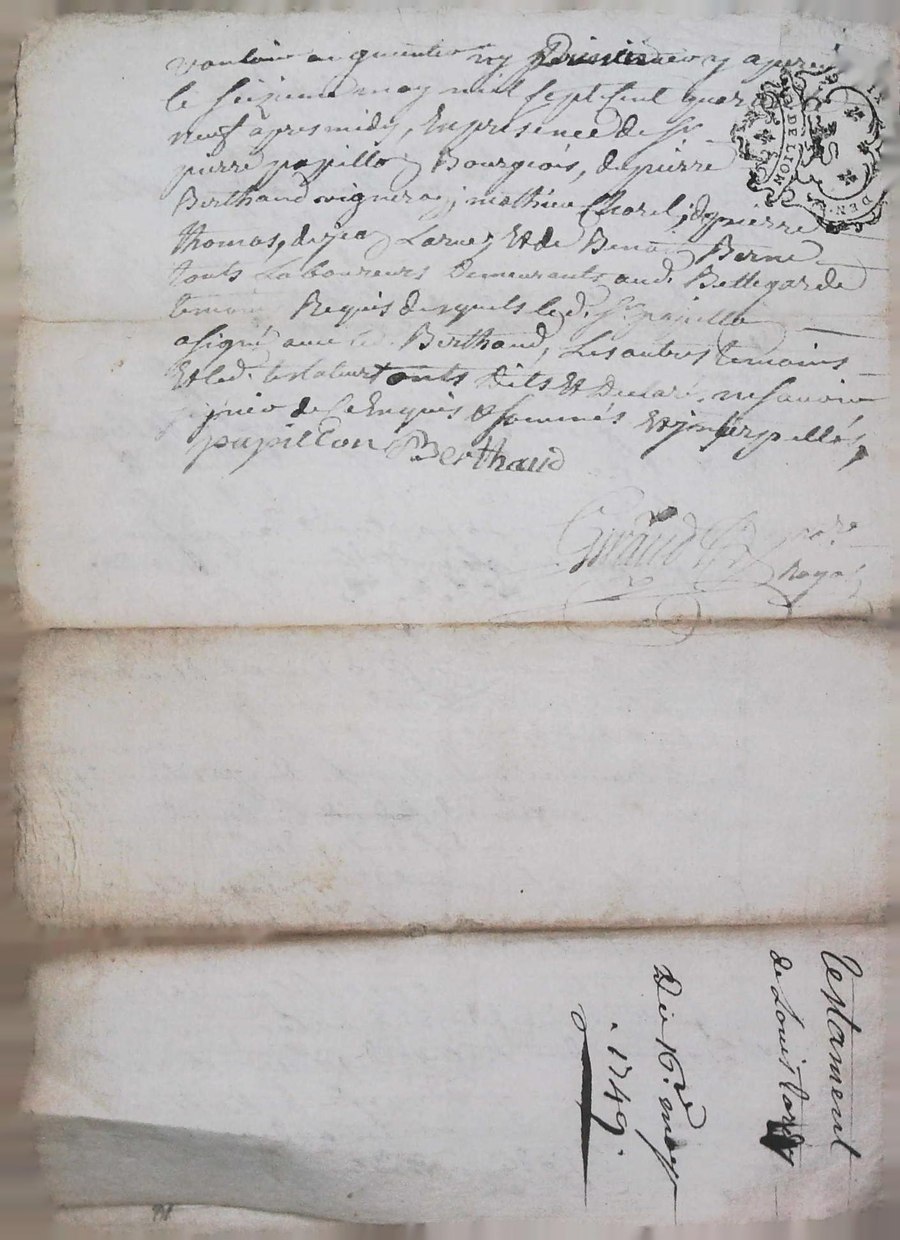 vouloir augmenter ny diminuer y apres
le seizieme may mil sept cent quar
neuf apres midy, En presence de Sr
pierre papillon Bourgeois, de pierre
Berthaud vigneron, mathieu Chorel, de pierre
thomas, de jean Larue, Et de Benoi Berne
touts Laboureurs Demeurants aud. Bellegarde
temoins Requis desquels led. Sr papillon
a signé avec led. Berthaud, Les autres temoins
Et led. testateur onts Dits Et Declaré ne savoir
signer de ce Enquis & sommés Et jnterpellés,
papillon Berthaud
Giraud nore
Royal
DE LION
DEN
IX
testament
de Louis
Du 16e may
1749.